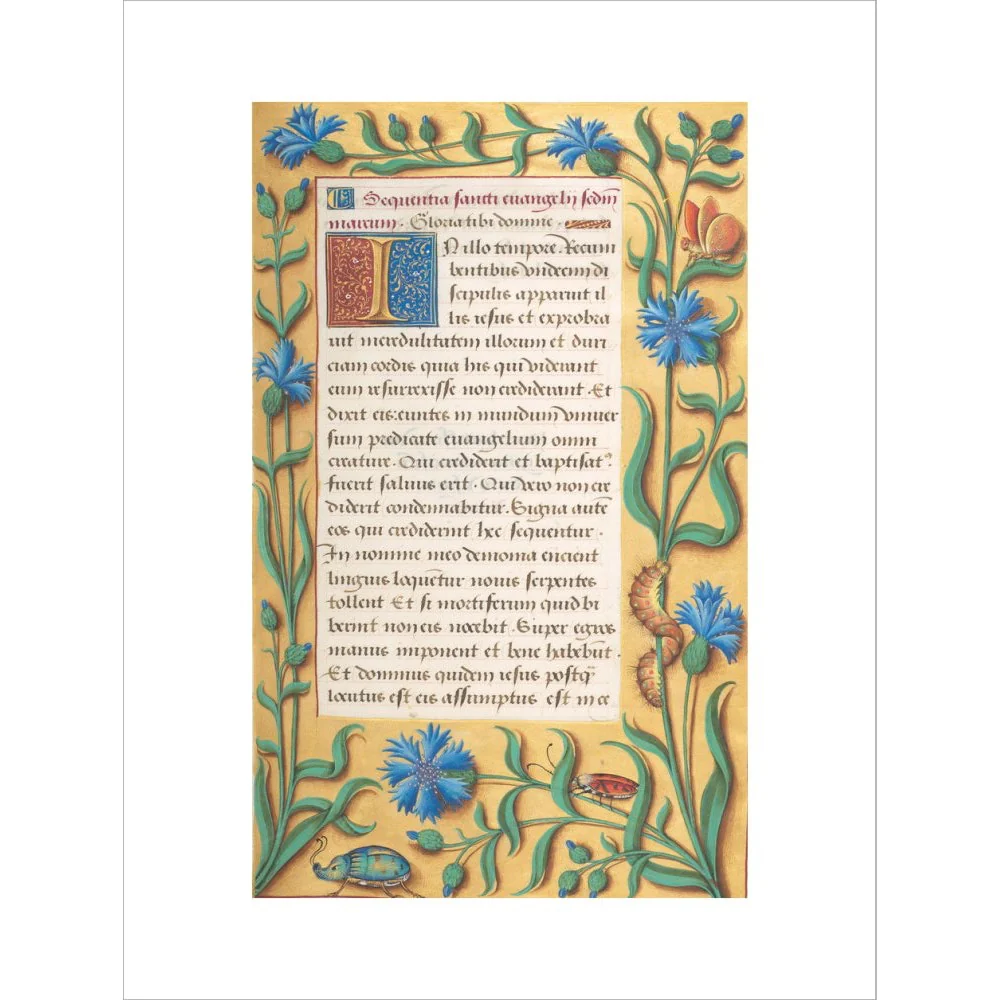 Sequentia sancti euangelij sedm̄
marcum. Gloria tibi domine.
IN illo tempore. Recum
bentibus vndecim di
scipulis apparuit il
lis iesus et exprobra
uit incredulitatem illorum et duri
ciam cordis quia his qui viderant
eum resurrexisse non crediderant. Et
dixit eis: euntes in mundum vniuer
sum predicate euangelium omni
creature. Qui crediderit et baptisatꝰ
fuerit saluus erit. Qui vero non cre
diderit condemnabitur. Signa autē
eos qui crediderint hec sequentur.
In nomine meo demonia eiicient
linguis loquētur nouis serpentes
tollent Et si mortiferum quid bi
berint non eis nocebit. Super egros
manus imponent et bene habebūt.
Et dominus quidem iesus postq̄
locutus est eis assumptus est in ce